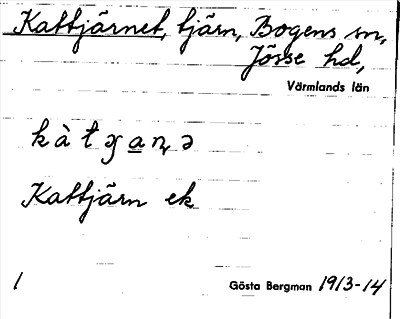 Kattjärnet, tjärn, Bogens sn,
Jösse hd,
Värmlands län
kàtʒa̲nə
Kattjärn ek
1 Gösta Bergman 1913-14